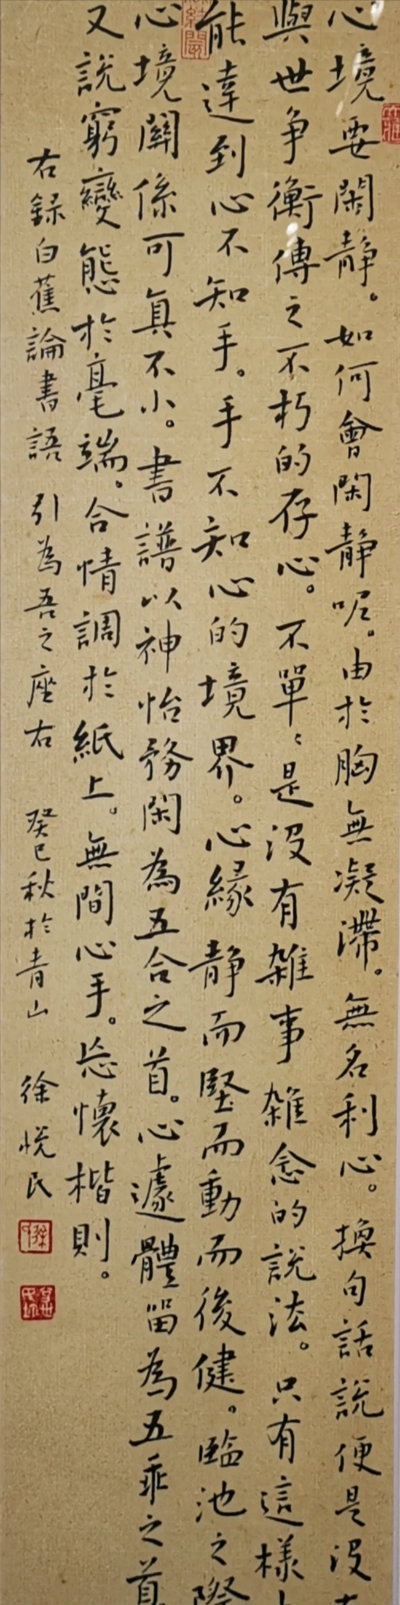 心境要閑静。如何會閑静呢。由於胸無凝滯。無名利心。換句話說便是沒有
與世争衡傳之不朽的存心。不單〻是没有雜事雜念的說法。只有這樣
能達到心不知手。手不知心的境界。心緣静而堅而動而後健。臨池之際
心境關係可真不小。書譜以神怡務閑為五合之首。心遽體留為五乖之首
又說窮變態於毫端。合情調於紙上。無間心手。忘懷楷則。
右録白蕉論書語 引為吾之座右 癸巳秋於青山 徐悦民